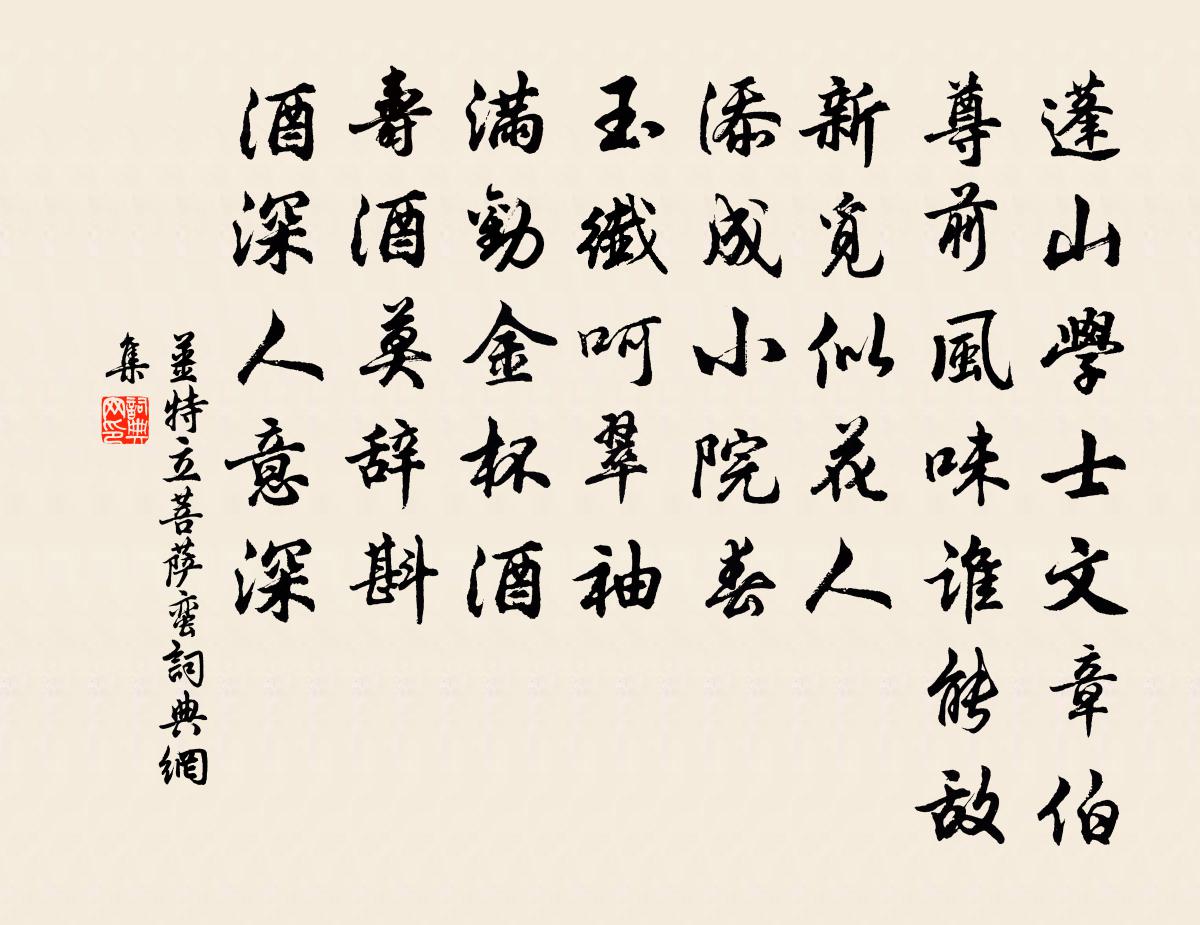 蓬山學士文章伯
尊前風味谁能敌
新覓似花人
添成小院春
玉纖呵翠袖
滿勸金杯酒
壽酒莫辞斟
酒深人意深
姜特立菩萨蛮詞典網
集
詞典
网印